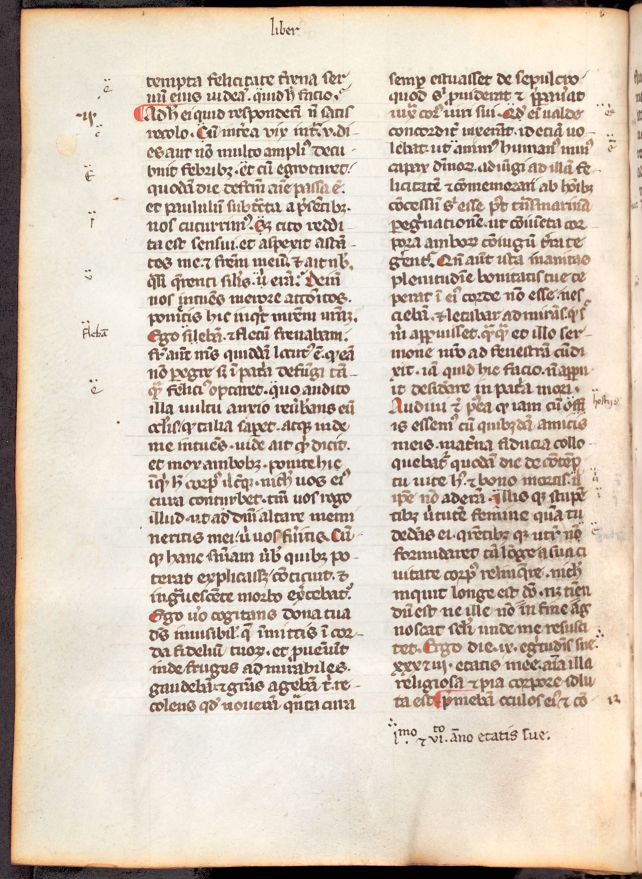 liber
tempta felicitate t̄rena ser
uū eius uideā. quid h̄ facio.
Ad h̄ ei quid respondeī n̄ satis
recolo. Cū īterea uix int͛ .v. di
es aut nō multo ampli9 decu
buit febribȝ. et cū egrotaret
quodā die defectū aīe passa ē.
et paululū subt͛cta a p͛sētibȝ.
nos cucurrim9. Sȝ cito reddi
ta est sensui. et aspexit astā
tes me ⁊ fr̄em meū. ⁊ ait nob̄.
q̄si q̄renti sil̄is. u͛ eraȝ. Dein
nos intuēs merore attōitos.
ponitis hic inq̄t mr̄em ur̄aȝ.
Ego silebā. ⁊ fletū frenabam.
fr̄ aūt m̄s quiddā locut9 ē. q̄ eā
nō pegre sȝ ī pat͛a defungi tā
q̄ felici9 optaret. Quo audito
illa uultu anxio reūbans eū
ocl̄is. q͛ talia sap̄et. atq̄ inde
me intuēs. uide ait q͛ dicit.
et mox ambobȝ. ponite hic
inq̄ h̄ corp9 ubicūq̄. nichil uos ei9
cura conturbet. tm̄ uos rogo
illud. ut ad dn̄i altare memi
neritis mei. ubi fūitis. Cū
q̄ hanc sn̄iam ūb̄ quibȝ po
terat explicass3 cōticuit. ⁊
ingͣuescente morbo ex͛cebat͛.
Ego ūo cogitans dona tua
ds̄ inuisibil̄. q̄ īmittis ī cor
da fideliū tuoȝ. et pueniūt
inde fruges admirabiles.
gaudebā. ⁊ gr̄as agebā t͛. re
colens qd̄ nouerā. quāta cura
semp estuasset de sepulcro
quod s͛ p͛uiderat ⁊ p͛parauat
iuxͣ corp9 uiri sui. Qͥ ei ualde
concordit͛ uixerūt. id etiā uo
lebat. ut anim9 human9 min9
capax diuinoȝ. adiūgi ad illā fe
licitatē ⁊ cōmemorari ab hōibȝ
cōcessū s͛ esse p9t t͛nsmarinā
pegͥnationē. ut cōiuncta cor
pora amboȝ cōiugū t͛ra te
geret͛. Qn̄ aūt ista inanitas
plenitudine bonitatis tue ce
perat ī ei9 corde nō esse. nes
ciebā. ⁊ letabar admirās. q͛ s͛
m̄ apparuisset. q̄q̄ et illo ser
mone nr̄o ad fenestrā cū di
xit. iā quid hic facio. n̄ appa
it desid͛are in pat͛a mori.
Audiui ⁊ p9tea q͛ iam cū osti
is essem9 cū quibȝdā amicis
meis. mat͛na fiducia collo
quebat͛ quodā die de cōtēp
tu uite h9. ⁊ bono mortis. u͛
ip̄e nō aderā. Illis q̄ stupē
tibȝ uirtutē femine quā tu
dedās ei. q̄rētibȝ q̄ utr͛ nō
formidaret tā lōge a sua ci
uitate corp9 relinq̄re. nich̄
inquit longe est dō. nȝ timē
dū est ne ille nō in fine ag
noscat secl̄i. unde me resusci
tet. Ergo die .ix. egͥtudīs sue.
xxx⁊iii. etatis mee. aīa illa
religiosa ⁊ pia corpore solu
ta est. P͛mebā oculos ei9 ⁊ cō
.imo ⁊ .vito. āno etatis sue.
flebā
hostiis
12